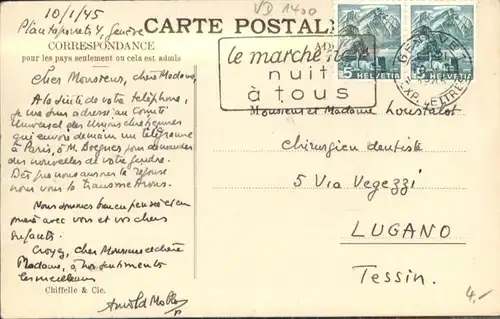 10/1/45
VD 1400
Plantaporrets 4, Genève
CARTE POSTALE
CORRESPONDANCE
pour les pays seulement ou cela est admis
AD
le marché
nuit
à tous
5 HELVETIA 5 HELVETIA
GENÈVE
EXP. LETTRES
Cher Monsieur, chère Madame,
A la suite de votre téléphone,
je me suis adressé au Comité
Universel des Unions chrétiennes
qui envoie demain un télégramme
à Paris, à M. pour demander
des nouvelles de votre gendre.
Dès que nous aurons la réponse
nous vous la transmettrons.
Nous sommes beaucoup en pensée et en
prière avec vous et vos chers
enfants.
Croyez, cher Monsieur et chère
Madame, à nos sentiments
les meilleurs
Chiffelle & Cie.
Arnold
Monsieur et Madame Loustalot
Chirurgien dentiste
5 Via Vegezzi
LUGANO
Tessin.
4.-